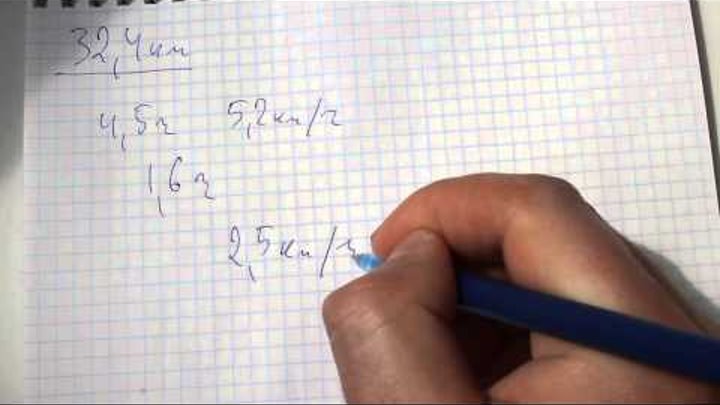 32,4км
4,5ч 5,2км/ч
1,6ч
2,5км/ч